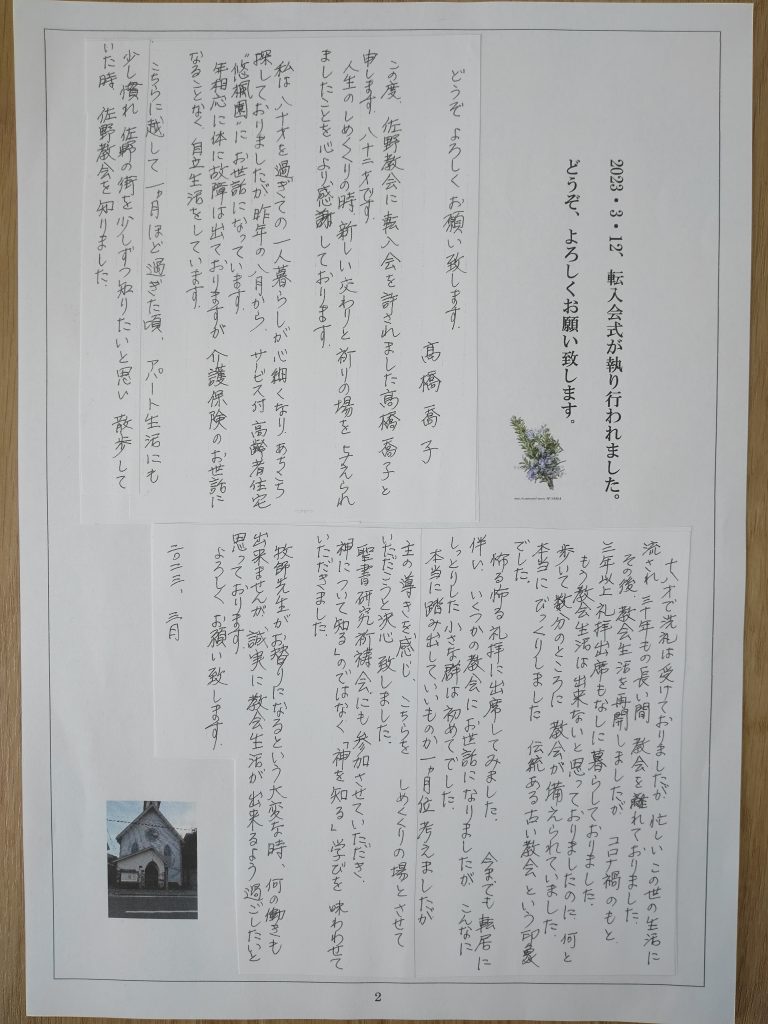 2023・3・12、転入会式が執り行われました。
どうぞ、よろしくお願い致します。
どうぞ よろしく お願い致します。
髙橋喬子
この度、佐野教会に転入会を許されました髙橋喬子と
申します。八十二才です。
人生のしめくくりの時、新しい交わりと祈りの場を 与えられ
ましたことを心より感謝しております。
私は 八十才を過ぎての 一人暮らしが心細くなり、あちこち
探しておりましたが 昨年の八月から サービス付 高齢者住宅
"悠楓園"に お世話になっています。
年相応に体に故障は出ておりますが 介護保険のお世話に
なることなく、自立生活をしています。
こちらに越して 一ヵ月ほど過ぎた頃、アパート生活にも
少し慣れ 佐野の街を少しずつ知りたいと思い 散歩して
いた時、佐野教会を知りました。
十八才で洗礼は受けておりましたが 忙しいこの世の生活に
流され 三十年もの長い間 教会を離れておりました。
その後、教会生活を再開しましたが コロナ禍のもと、
三年以上 礼拝出席もなしに暮らしておりました。
もう教会生活は出来ないと思っておりましたのに、何と
歩いて数分のところに 教会が備えられていました。
本当に びっくりしました 伝統ある古い教会 という印象
でした。
怖る怖る 礼拝に出席してみました。 今までも 転居に
伴い、いくつかの教会に お世話になりましたが こんなに
しっとりした 小さな群は初めてでした。
本当に踏み出していいものか 一ヵ月位 考えましたが
主の導きを感じ、こちらを しめくくりの場とさせて
いただこうと決心 致しました。
聖書研究祈祷会にも参加させていただき、
「神について知る」のではなく「神を知る」学びを 味わわせて
いただきました。
牧師先生がお替りになるという大変な時、何の働きも
出来ませんが、誠実に教会生活が 出来るよう 過ごしたいと
思っております。
よろしく お願い致します。
二〇二三、三月
2